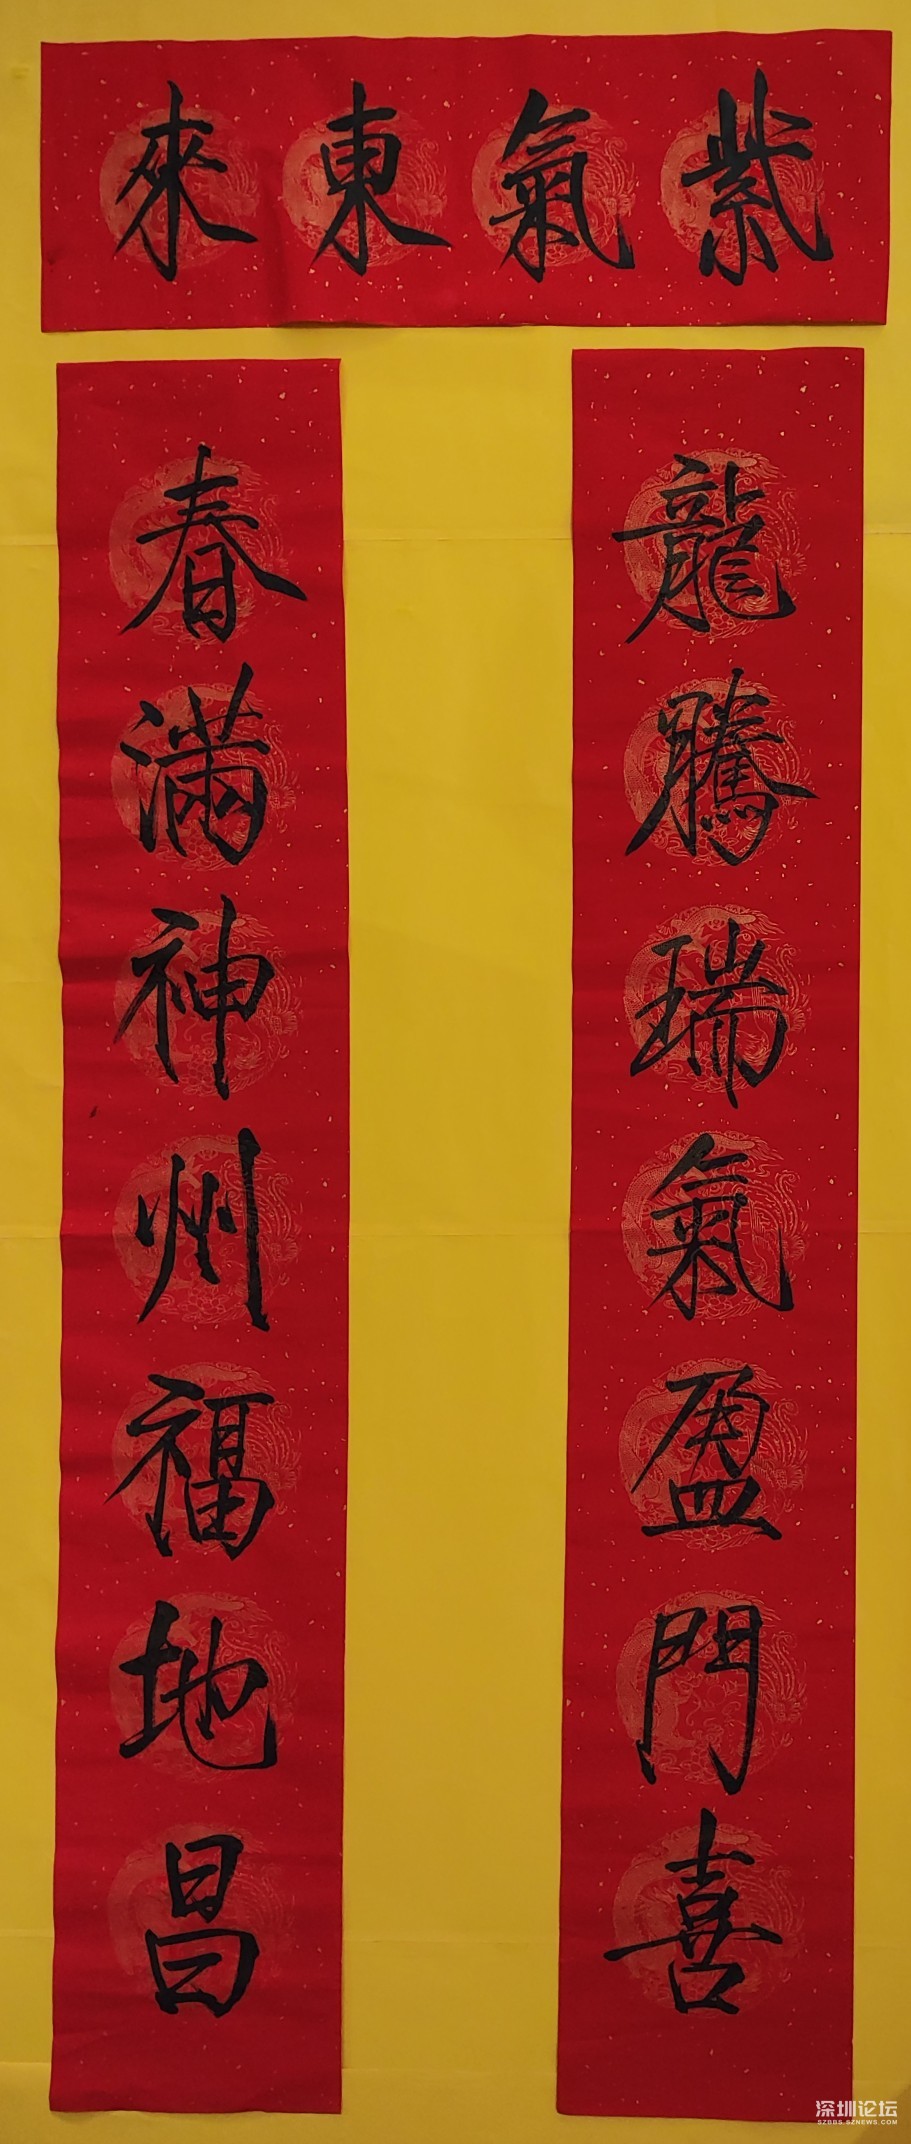 紫氣東來
龍騰瑞氣盈門喜
春滿神州福地昌
深圳论坛
SZBBS.SZNEWS.COM